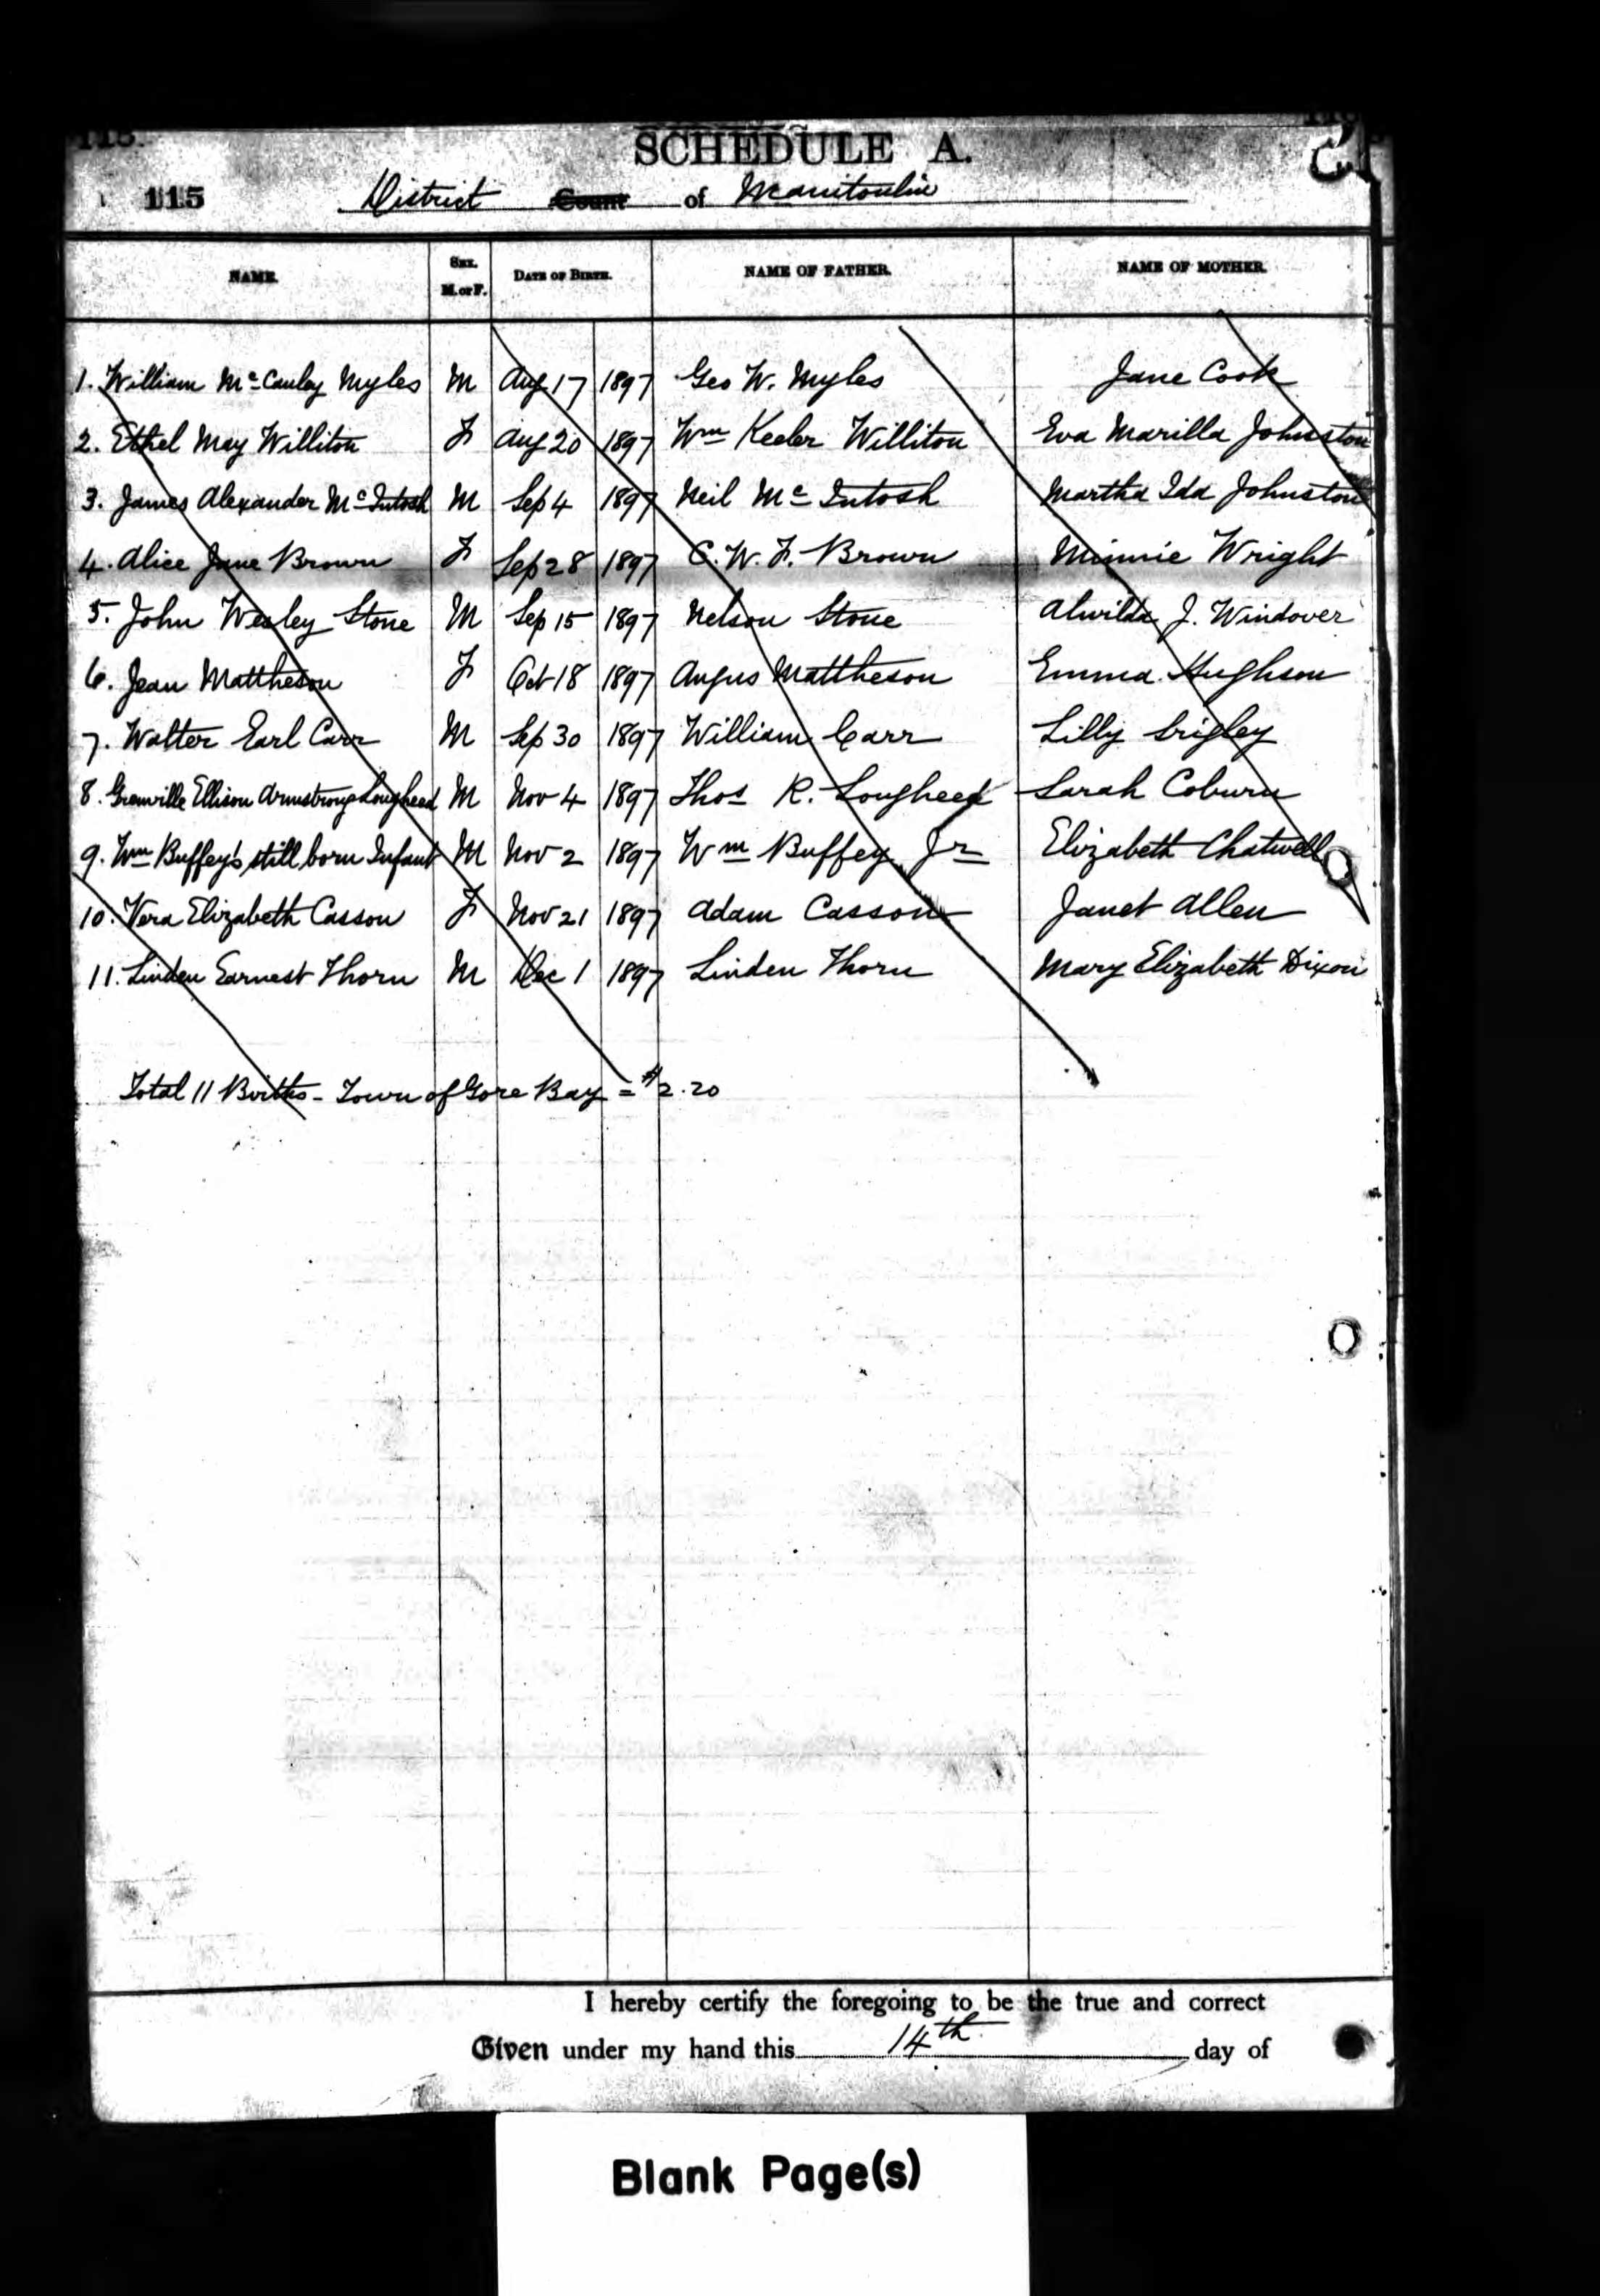 SCHEDULE A.
115 District Count of Manitoulin
NAME. SEX. M. or F. DATE OF BIRTH. NAME OF FATHER. NAME OF MOTHER.
1. William Mc Cauley Myles M Aug 17 1897 Geo W. Myles Jane Cook
2. Ethel May Williton F Aug 20 1897 Wm Keeler Williton Eva Marilla Johnston
3. James Alexander Mc Intosh M Sep 4 1897 Neil Mc Intosh Martha Ida Johnston
4. Alice Jane Brown F Sep 28 1897 C. W. F. Brown Minnie Wright
5. John Wesley Stone M Sep 15 1897 Nelson Stone Alwilda J. Windover
6. Jean Mattheson F Oct 18 1897 Angus Mattheson Emma Hughson
7. Walter Earl Carr M Sep 30 1897 William Carr Lilly Srigley
8. Grenville Ellison Armstrong Lougheed M Nov 4 1897 Thos R. Lougheed Sarah Coburn
9. Wm Buffey's still born Infant M Nov 2 1897 Wm Buffey Jr Elizabeth Chatwell
10. Vera Elizabeth Casson F Nov 21 1897 Adam Casson Janet Allen
11. Linden Earnest Thorn M Dec 1 1897 Linden Thorn Mary Elizabeth Dixon
Total 11 Births - Town of Gore Bay = $2.20
I hereby certify the foregoing to be the true and correct
Given under my hand this 14th day of
Blank Page(s)